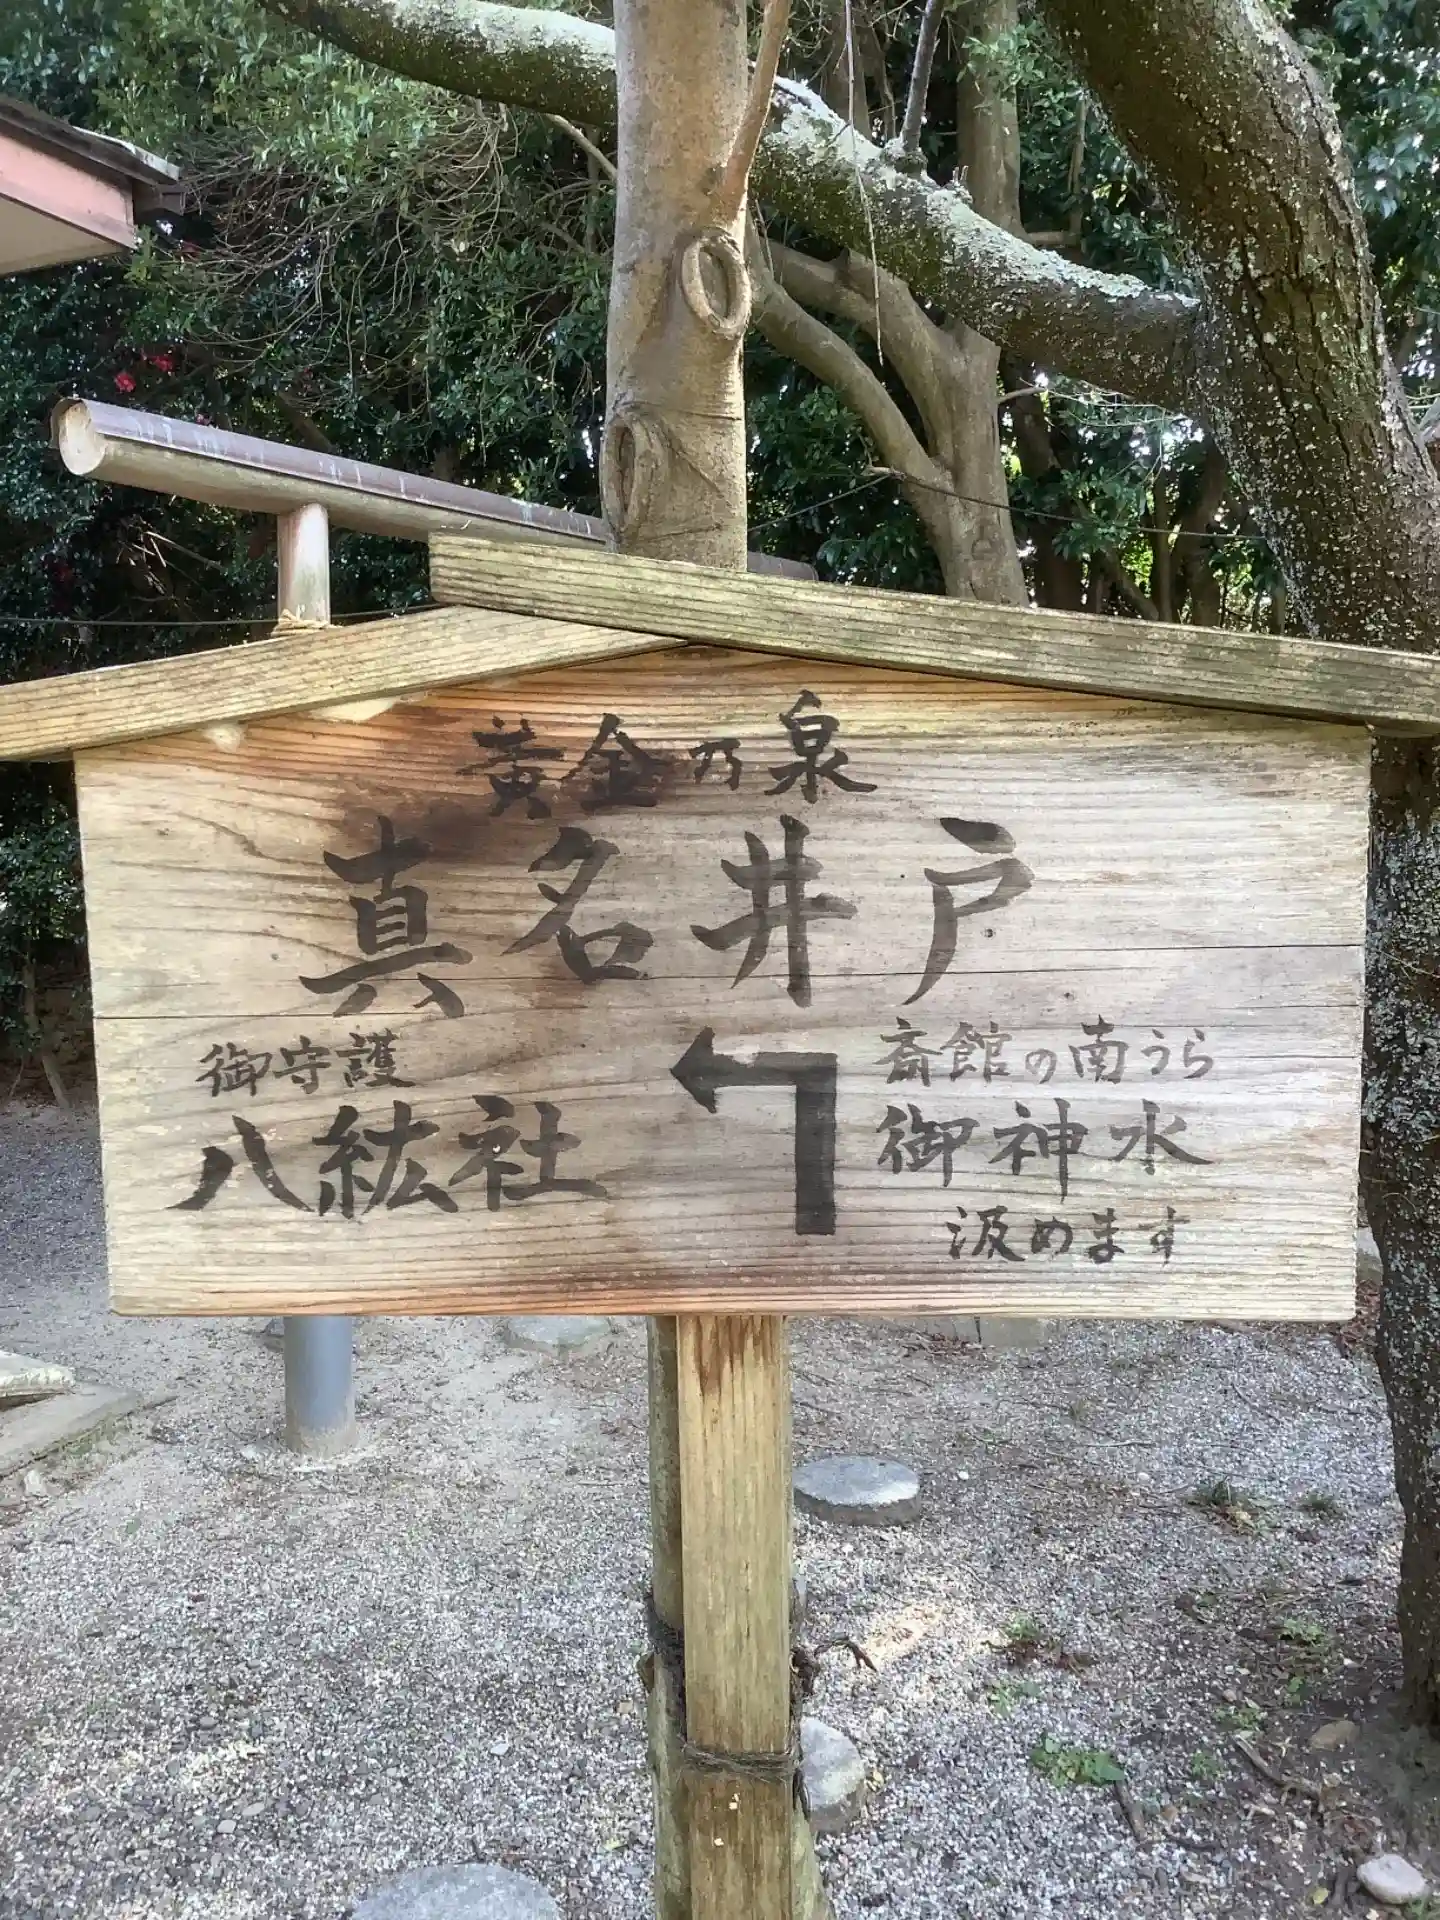 黄金乃泉
真名井戸
御守護
八紘社
斎館の南うら
御神水
汲めます